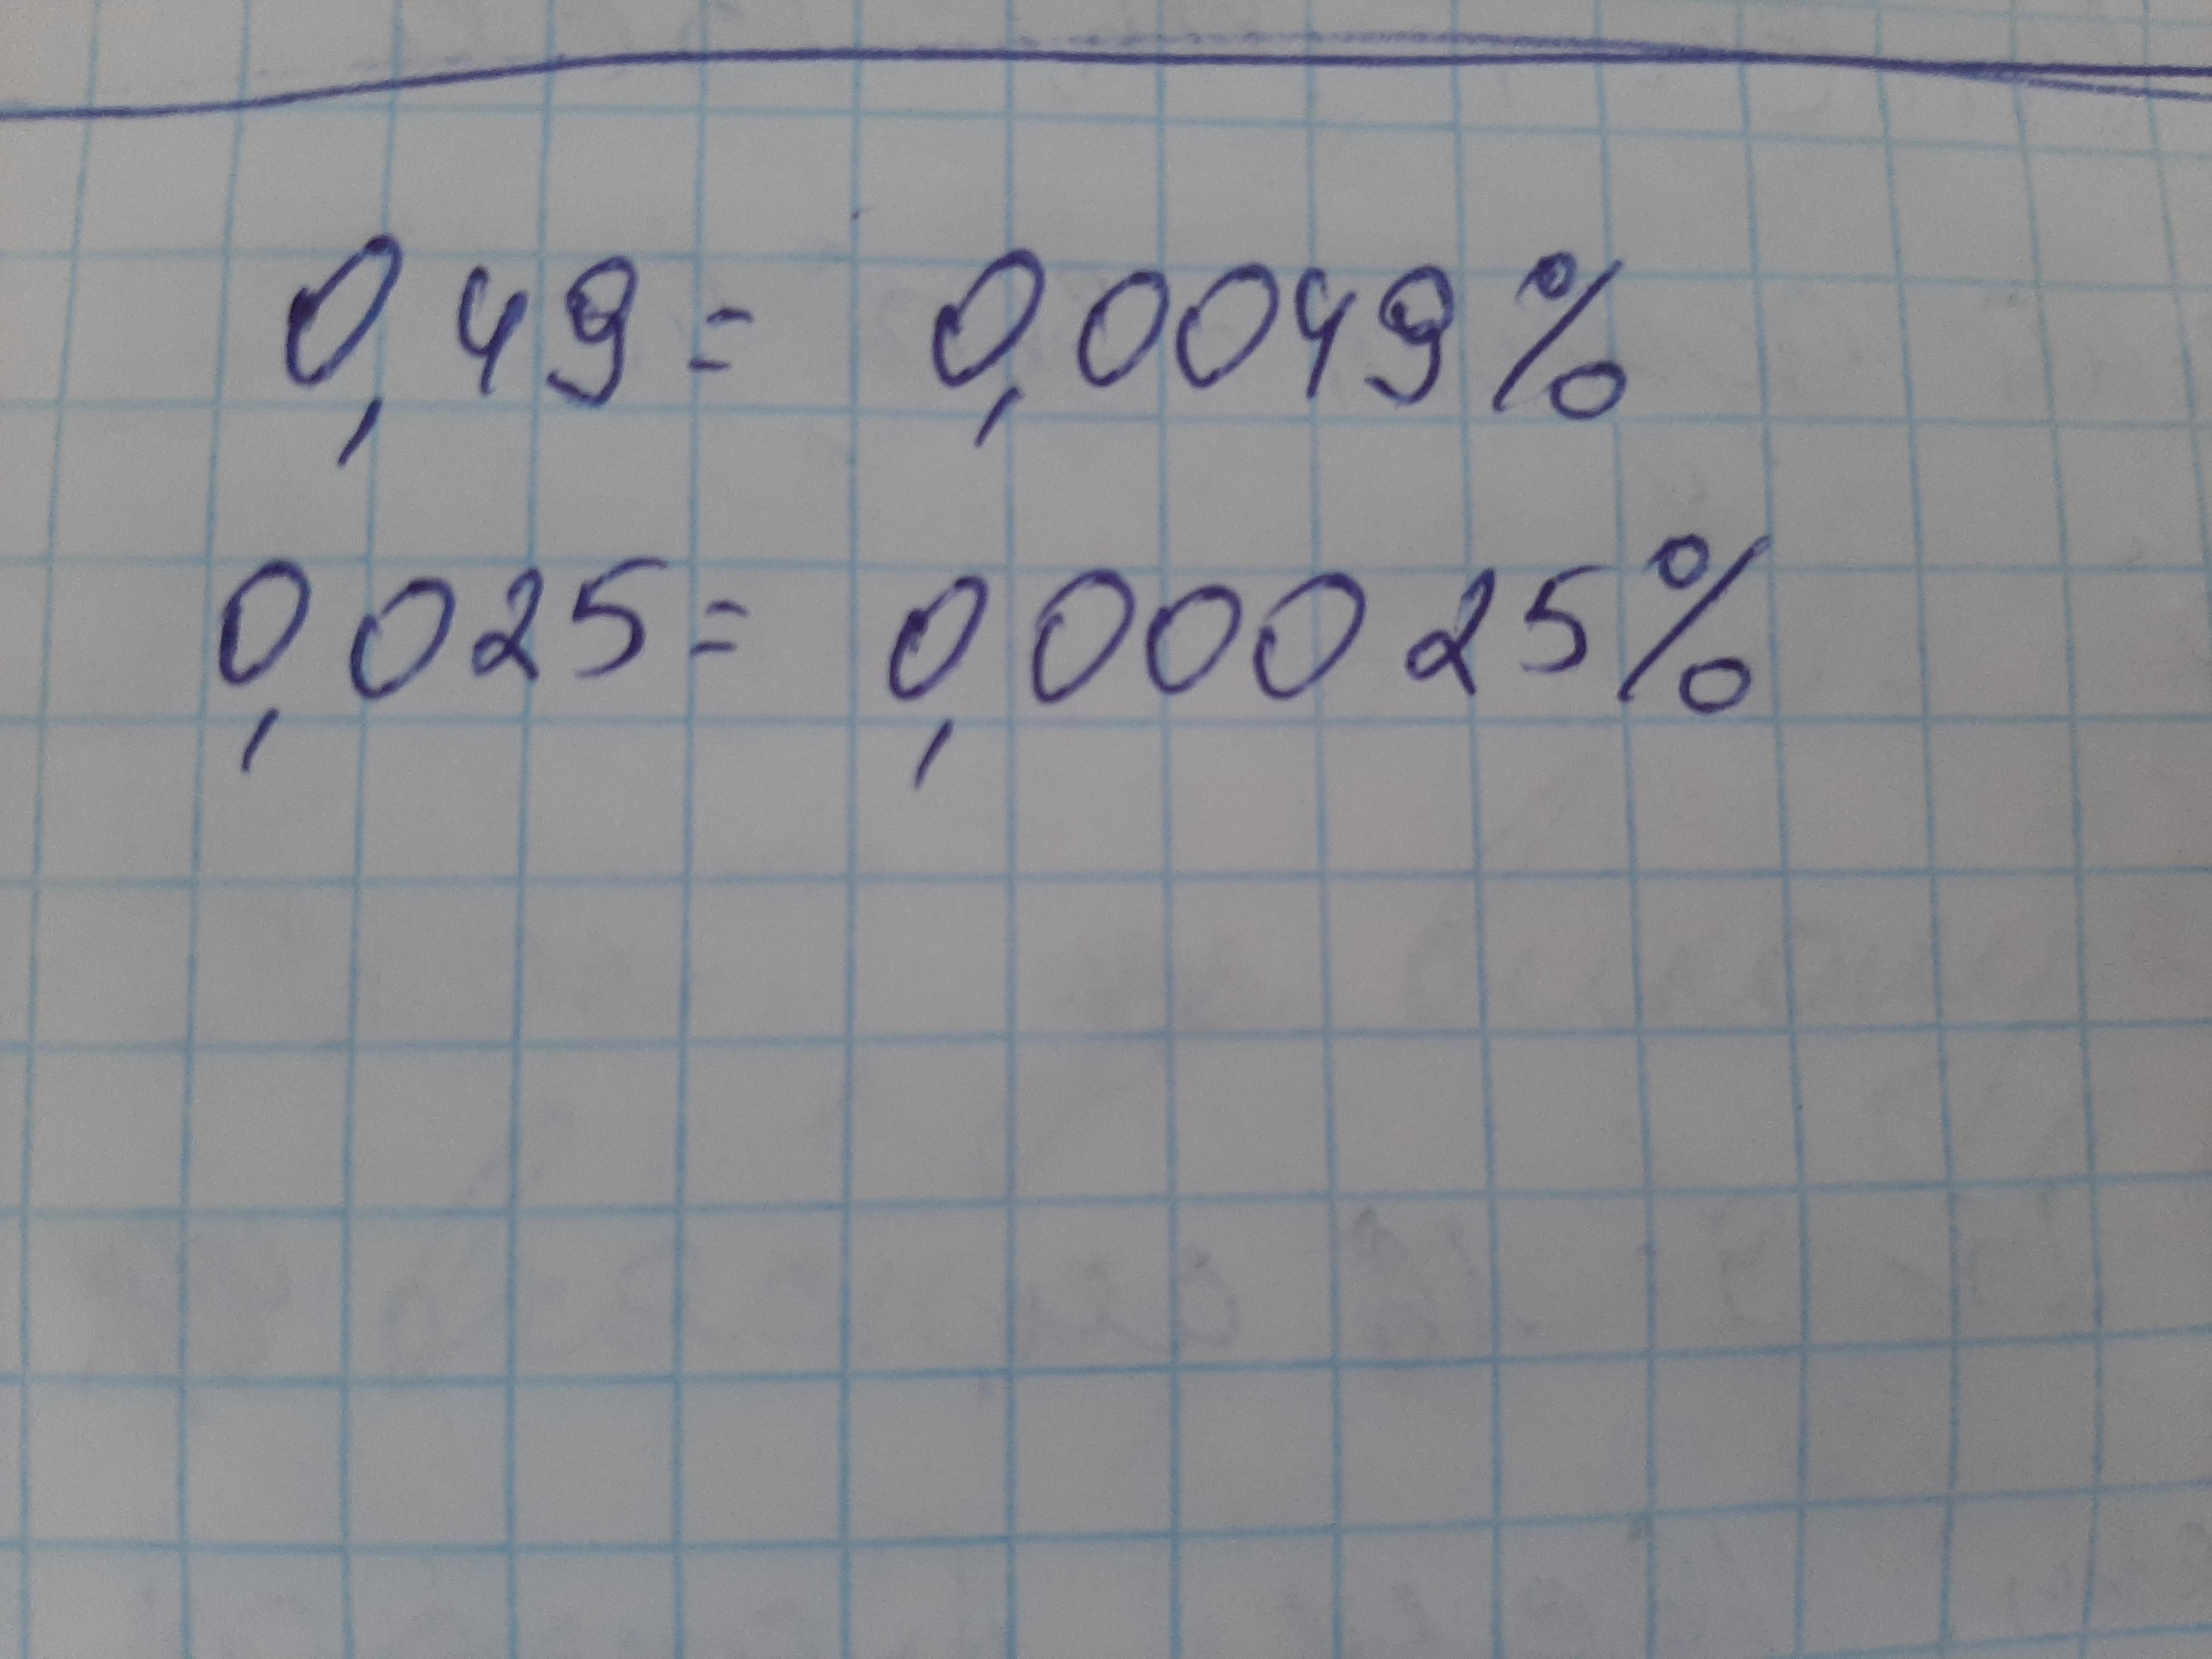 0,49 = 0,0049%
0,025 = 0,00025%